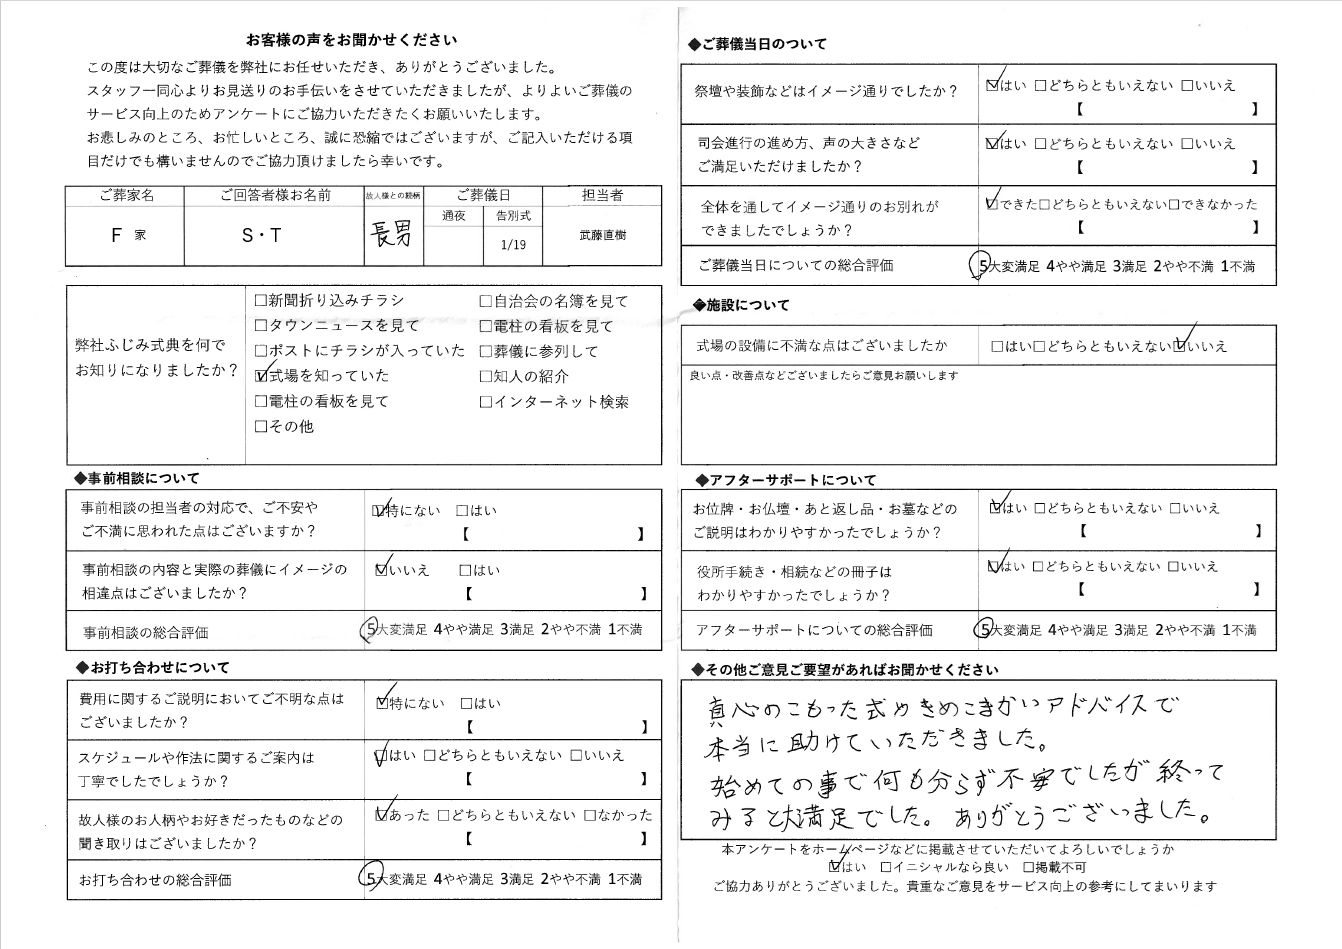 お客様の声をお聞かせください
この度は大切なご葬儀を弊社にお任せいただき、ありがとうございました。
スタッフ一同心よりお見送りのお手伝いをさせていただきましたが、よりよいご葬儀の
サービス向上のためアンケートにご協力いただきたくお願いいたします。
お悲しみのところ、お忙しいところ、誠に恐縮ではございますが、ご記入いただける項
目だけでも構いませんのでご協力頂けましたら幸いです。
ご葬家名 ご回答者様お名前 故人様との続柄 ご葬儀日 担当者
通夜 告別式
F 家 S・T 長男 1/19 武藤直樹
弊社ふじみ式典を何で
お知りになりましたか？
□新聞折り込みチラシ □自治会の名簿を見て
□タウンニュースを見て □電柱の看板を見て
□ポストにチラシが入っていた □葬儀に参列して
☑式場を知っていた □知人の紹介
□電柱の看板を見て □インターネット検索
□その他
◆事前相談について
事前相談の担当者の対応で、ご不安や
ご不満に思われた点はございますか？
☑特にない □はい
【 】
事前相談の内容と実際の葬儀にイメージの
相違点はございましたか？
☑いいえ □はい
【 】
事前相談の総合評価 5大変満足 4やや満足 3満足 2やや不満 1不満
◆お打ち合わせについて
費用に関するご説明においてご不明な点は
ございましたか？
☑特にない □はい
【 】
スケジュールや作法に関するご案内は
丁寧でしたでしょうか？
☑はい □どちらともいえない □いいえ
【 】
故人様のお人柄やお好きだったものなどの
聞き取りはございましたか？
☑あった □どちらともいえない □なかった
【 】
お打ち合わせの総合評価 5大変満足 4やや満足 3満足 2やや不満 1不満
◆ご葬儀当日のついて
祭壇や装飾などはイメージ通りでしたか？ ☑はい □どちらともいえない □いいえ
【 】
司会進行の進め方、声の大きさなど
ご満足いただけましたか？
☑はい □どちらともいえない □いいえ
【 】
全体を通してイメージ通りのお別れが
できましたでしょうか？
☑できた□どちらともいえない□できなかった
【 】
ご葬儀当日についての総合評価 5大変満足 4やや満足 3満足 2やや不満 1不満
◆施設について
式場の設備に不満な点はございましたか □はい□どちらともいえない☑いいえ
良い点・改善点などございましたらご意見お願いします
◆アフターサポートについて
お位牌・お仏壇・あと返し品・お墓などの
ご説明はわかりやすかったでしょうか？
☑はい □どちらともいえない □いいえ
【 】
役所手続き・相続などの冊子は
わかりやすかったでしょうか？
☑はい □どちらともいえない □いいえ
【 】
アフターサポートについての総合評価 5大変満足 4やや満足 3満足 2やや不満 1不満
◆その他ご意見ご要望があればお聞かせください
真心のこもった式やきめこまかいアドバイスで
本当に助けていただきました。
始めての事で何も分らず不安でしたが終って
みると大満足でした。ありがとうございました。
本アンケートをホームページなどに掲載させていただいてよろしいでしょうか
☑はい □イニシャルなら良い □掲載不可
ご協力ありがとうございました。貴重なご意見をサービス向上の参考にしてまいります